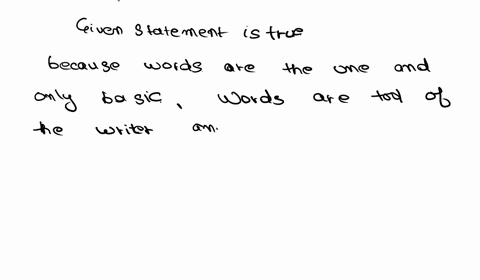 Given statement is true
because words are the one and
only basic, words are tool of
the writer an